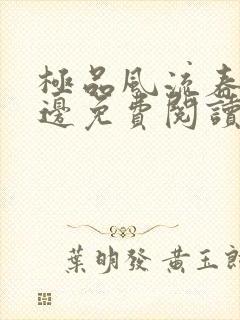 極品風流春
邊免費閱讀
葉明發 黃玉郎